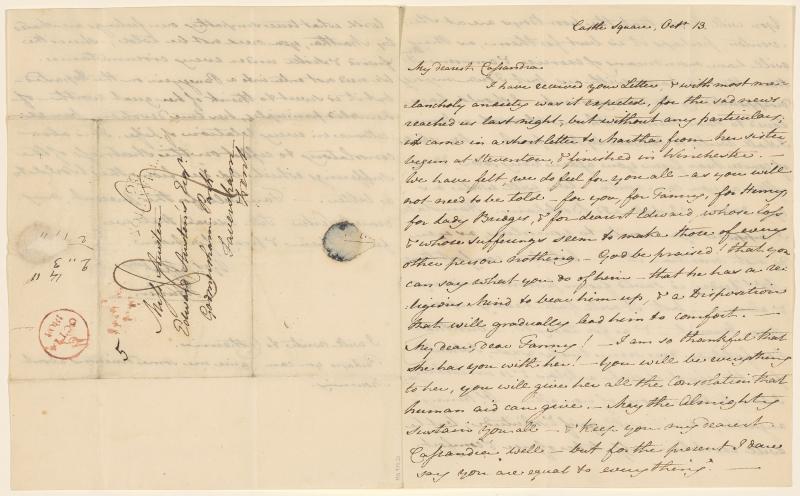 Castle Square, Octr. 13.
My dearest Cassandra
I have received your Letter, & with most me-
lancholy anxiety was it expected, for the sad news
reached us last night, but without any particulars;
it came in a short letter to Martha from her sister
begun at Steventon, & finished in Winchester. —
We have felt, we do feel for you all — as you will
not need to be told — for you, for Fanny, for Henry,
for Lady Bridges, & for dearest Edward, whose loss
& whose sufferings seem to make those of every
other person nothing. — God be praised! that you
can say what you do of him — that he has a re-
ligious Mind to bear him up, & a Disposition
that will gradually lead him to comfort. —
My dear, dear Fanny! — I am so thankful that
she has you with her! — You will be everything
to her, you will give her all the Consolation that
human aid can give. — May the Almighty
sustain you all — & keep you my dearest
Cassandra well — but for the present I dare
say you are equal to everything. —
Miss Austen
Edward Austen's Esqr.
Godmersham Park
Faversham
Kent
5
4 "
2 " 3